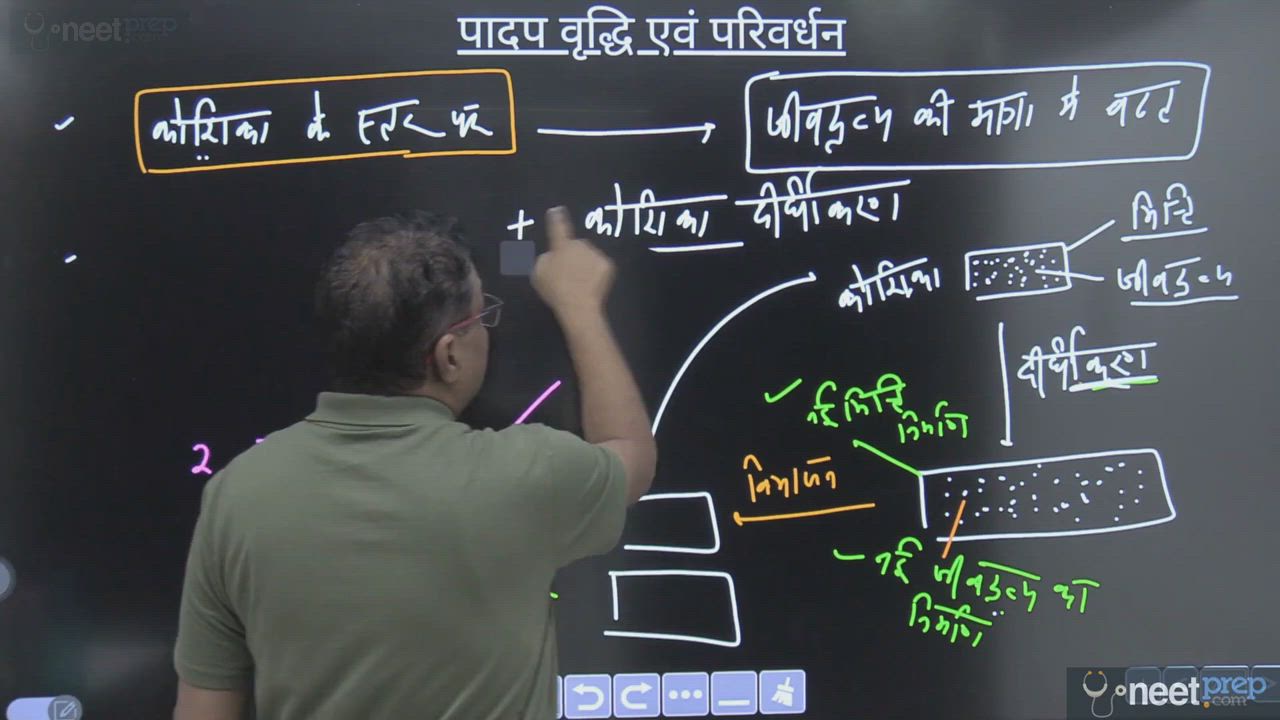 neetprep
.com
पादप वृद्धि एवं परिवर्धन
कोशिका के स्तर पर
जीवद्रव्य की मात्रा में बढत
+ कोशिका दीर्घीकरण
भित्ति
कोशिका
जीवद्रव्य
दीर्घीकरण
नई भित्ति
निर्माण
विभाजन
नई जीवद्रव्य का
निर्माण
2
neetprep
.com